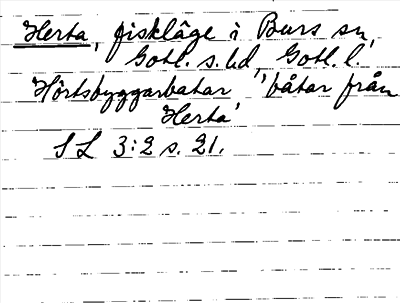 Herta, fiskläge i Burs sn,
Gotl. s. hd, Gotl. l.
Hörtsbyggarbatar 'båtar från
Herta'
SL 3:2 s. 21.